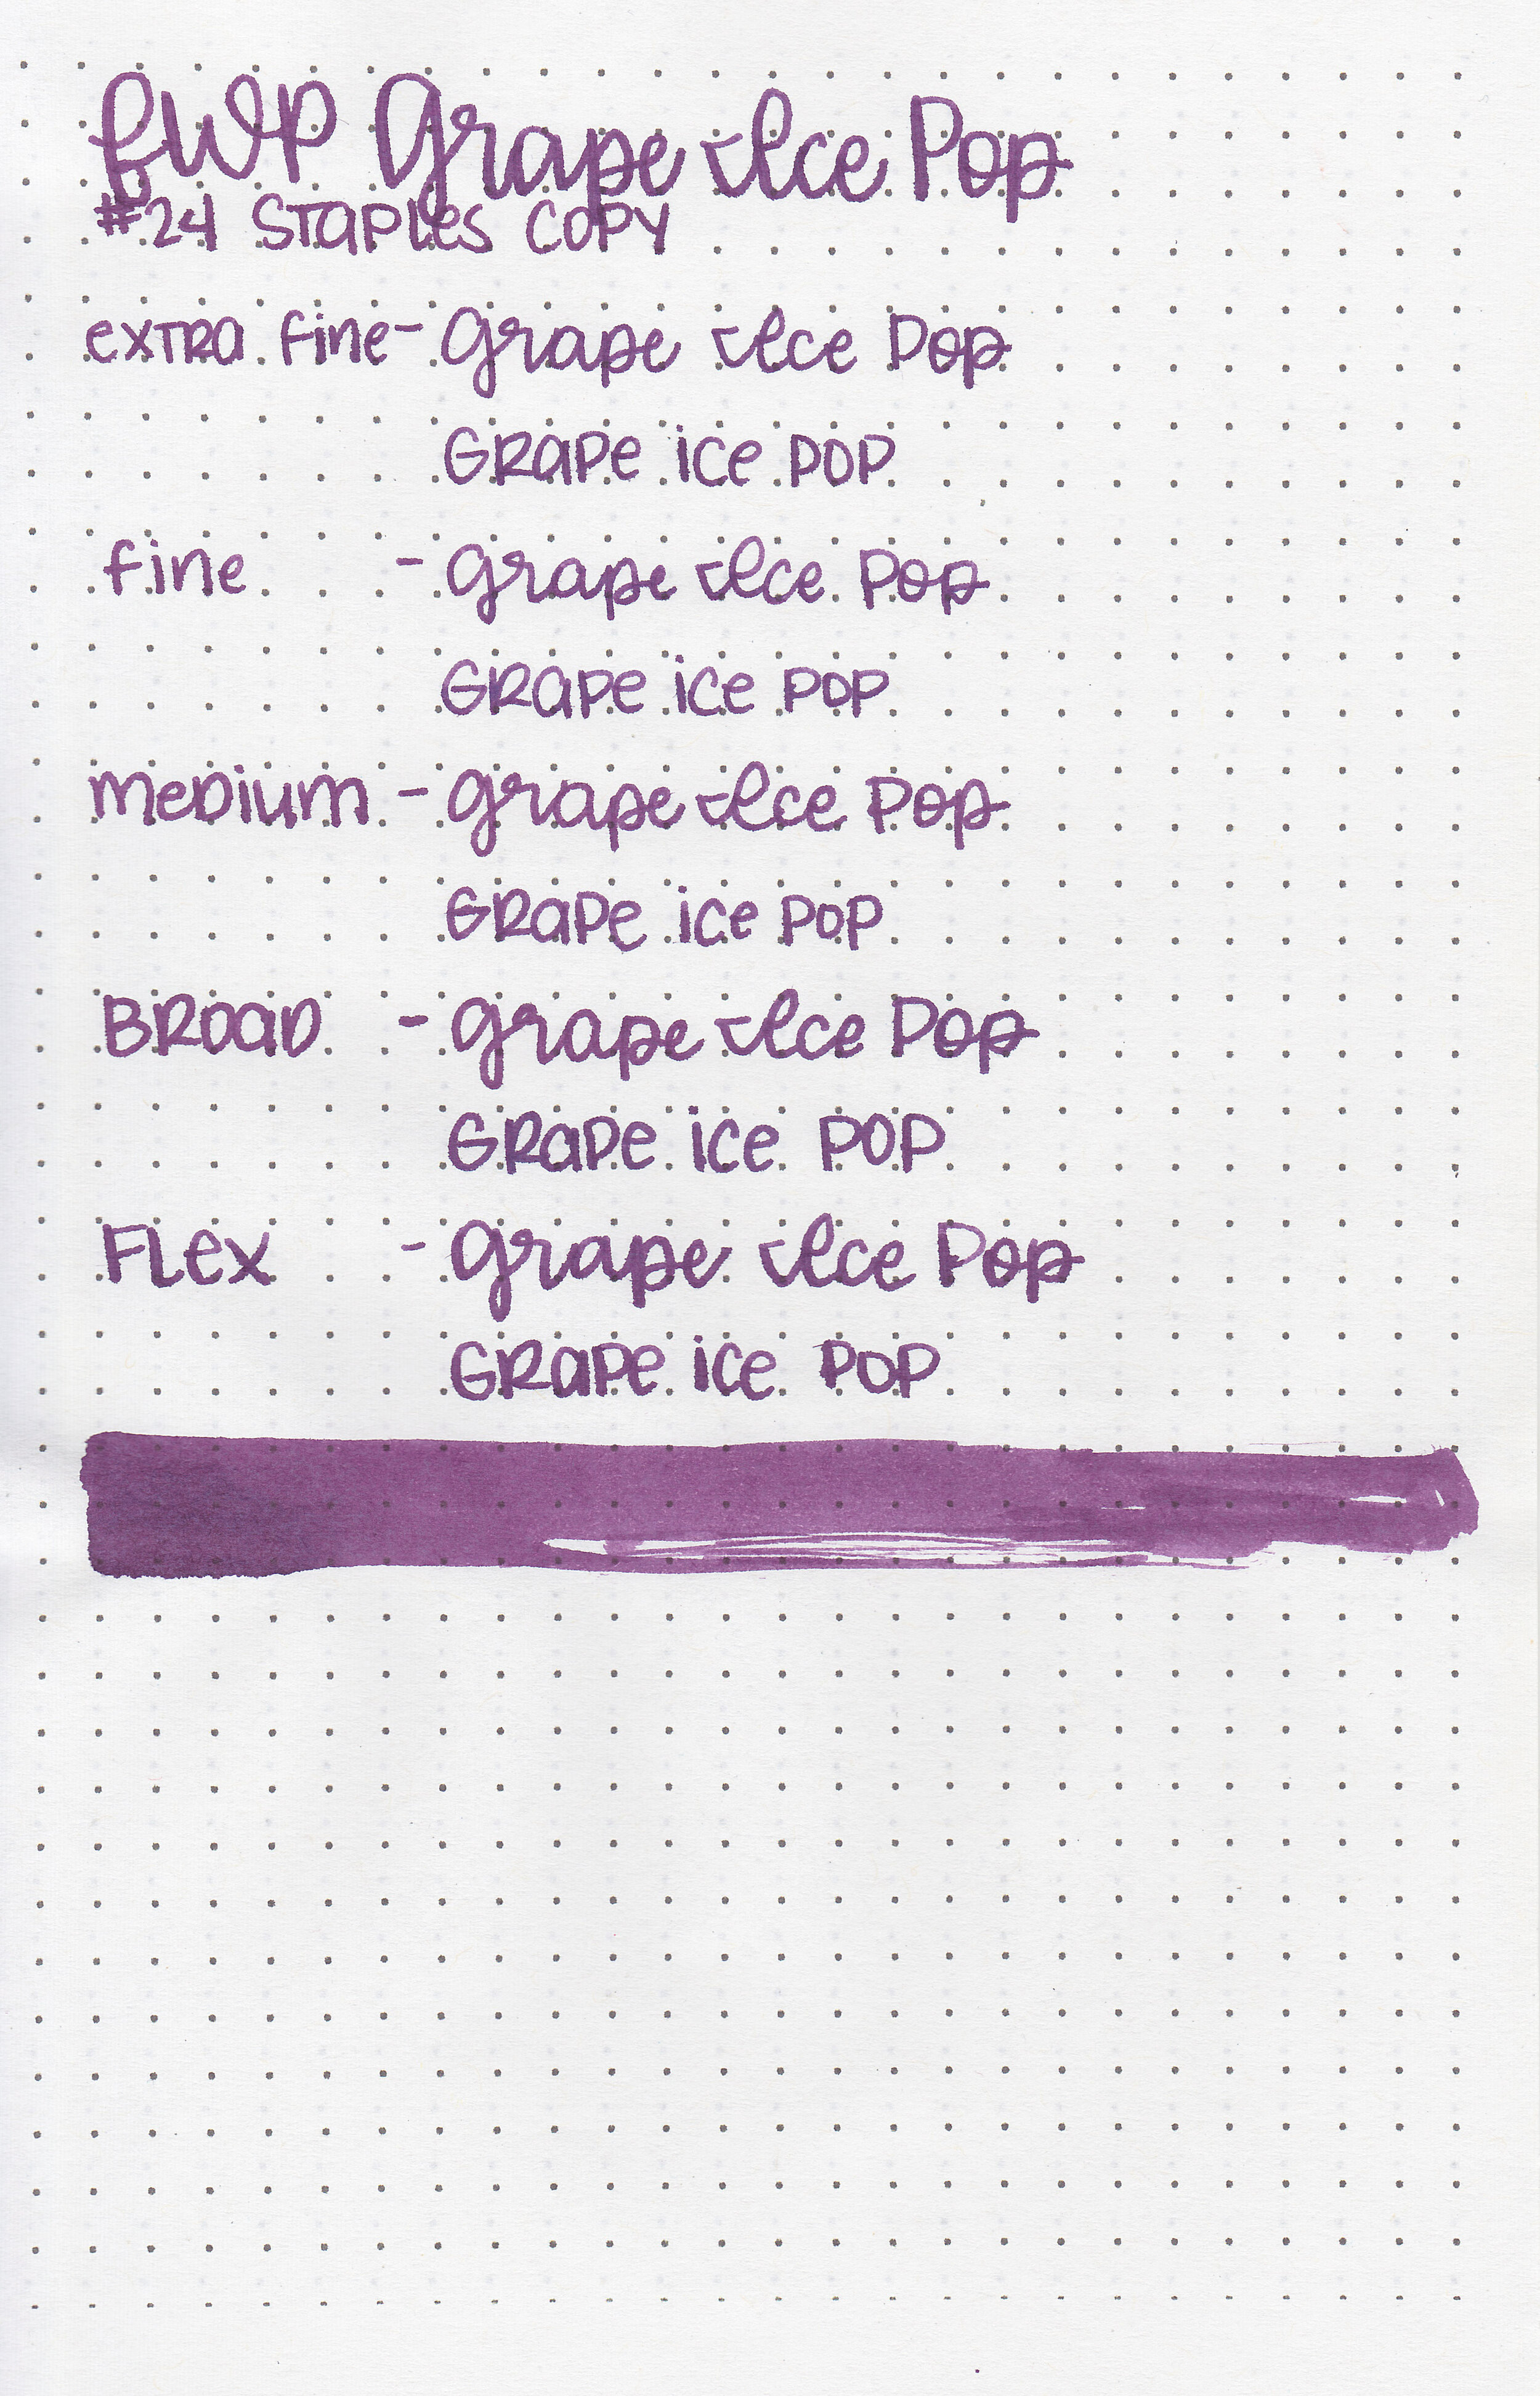 FWP Grape Ice Pop
#24 Staples Copy
extra fine - Grape Ice Pop
Grape ice pop
fine - Grape Ice Pop
Grape ice pop
medium - Grape Ice Pop
Grape ice pop
Broad - Grape Ice Pop
Grape ice pop
Flex - Grape Ice Pop
Grape ice pop